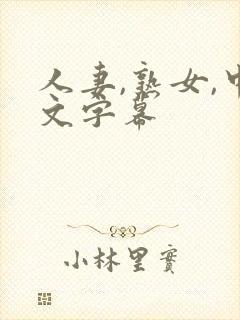 人妻,熟女,中
文字幕
小林里實